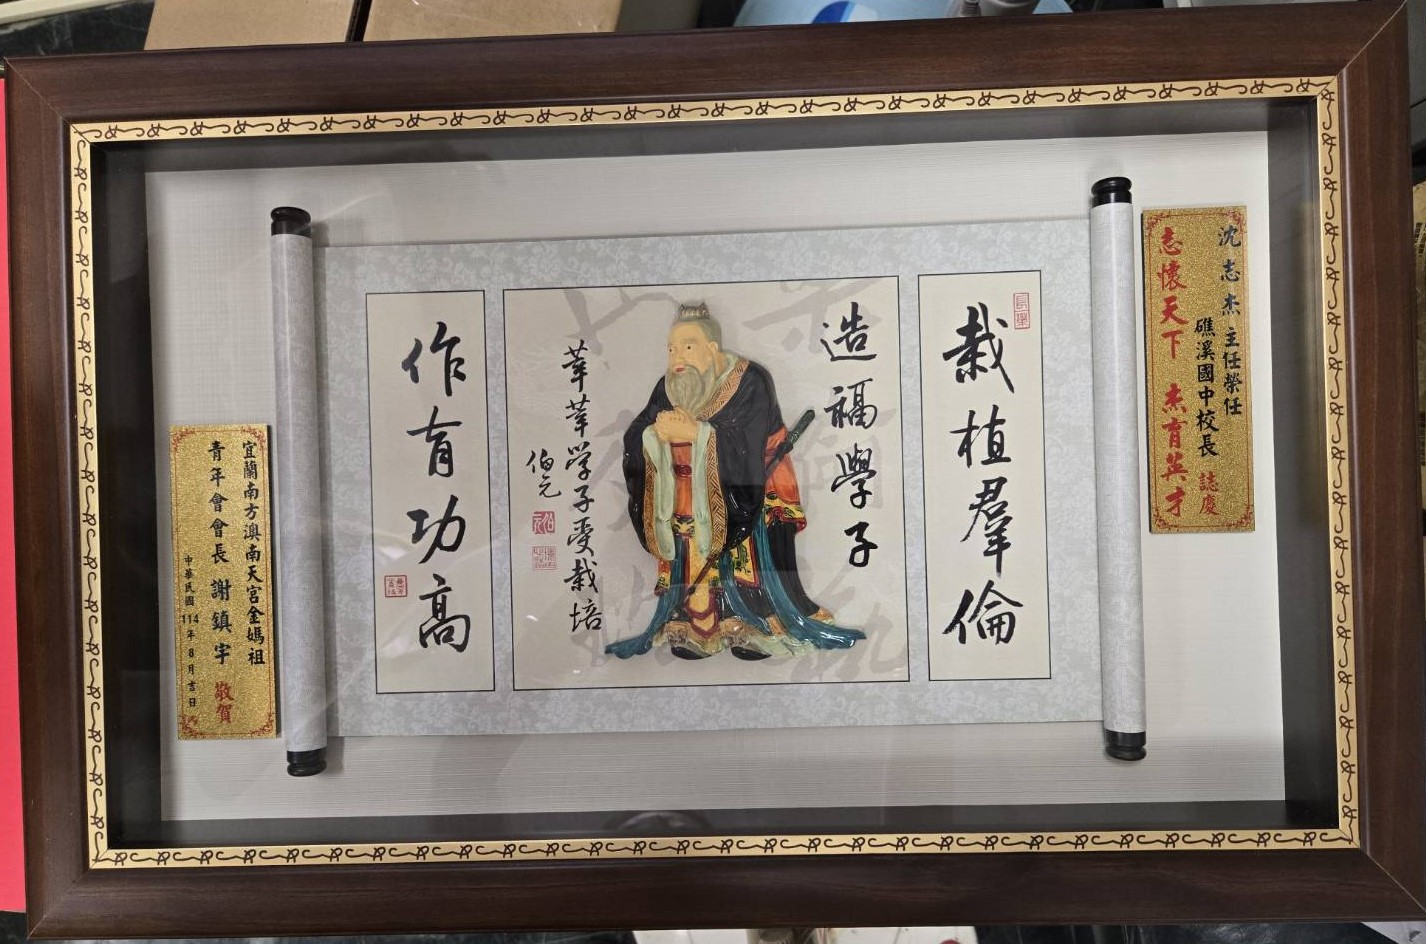 沈志杰主任榮任
礁溪國中校長 誌慶
志懷天下 杰育英才
栽植羣倫
造福學子
莘莘学子受栽培
伯元
作育功高
宜蘭南方澳南天宮金媽祖
青年會會長 謝鎮宇 敬賀
中華民國114年8月吉日